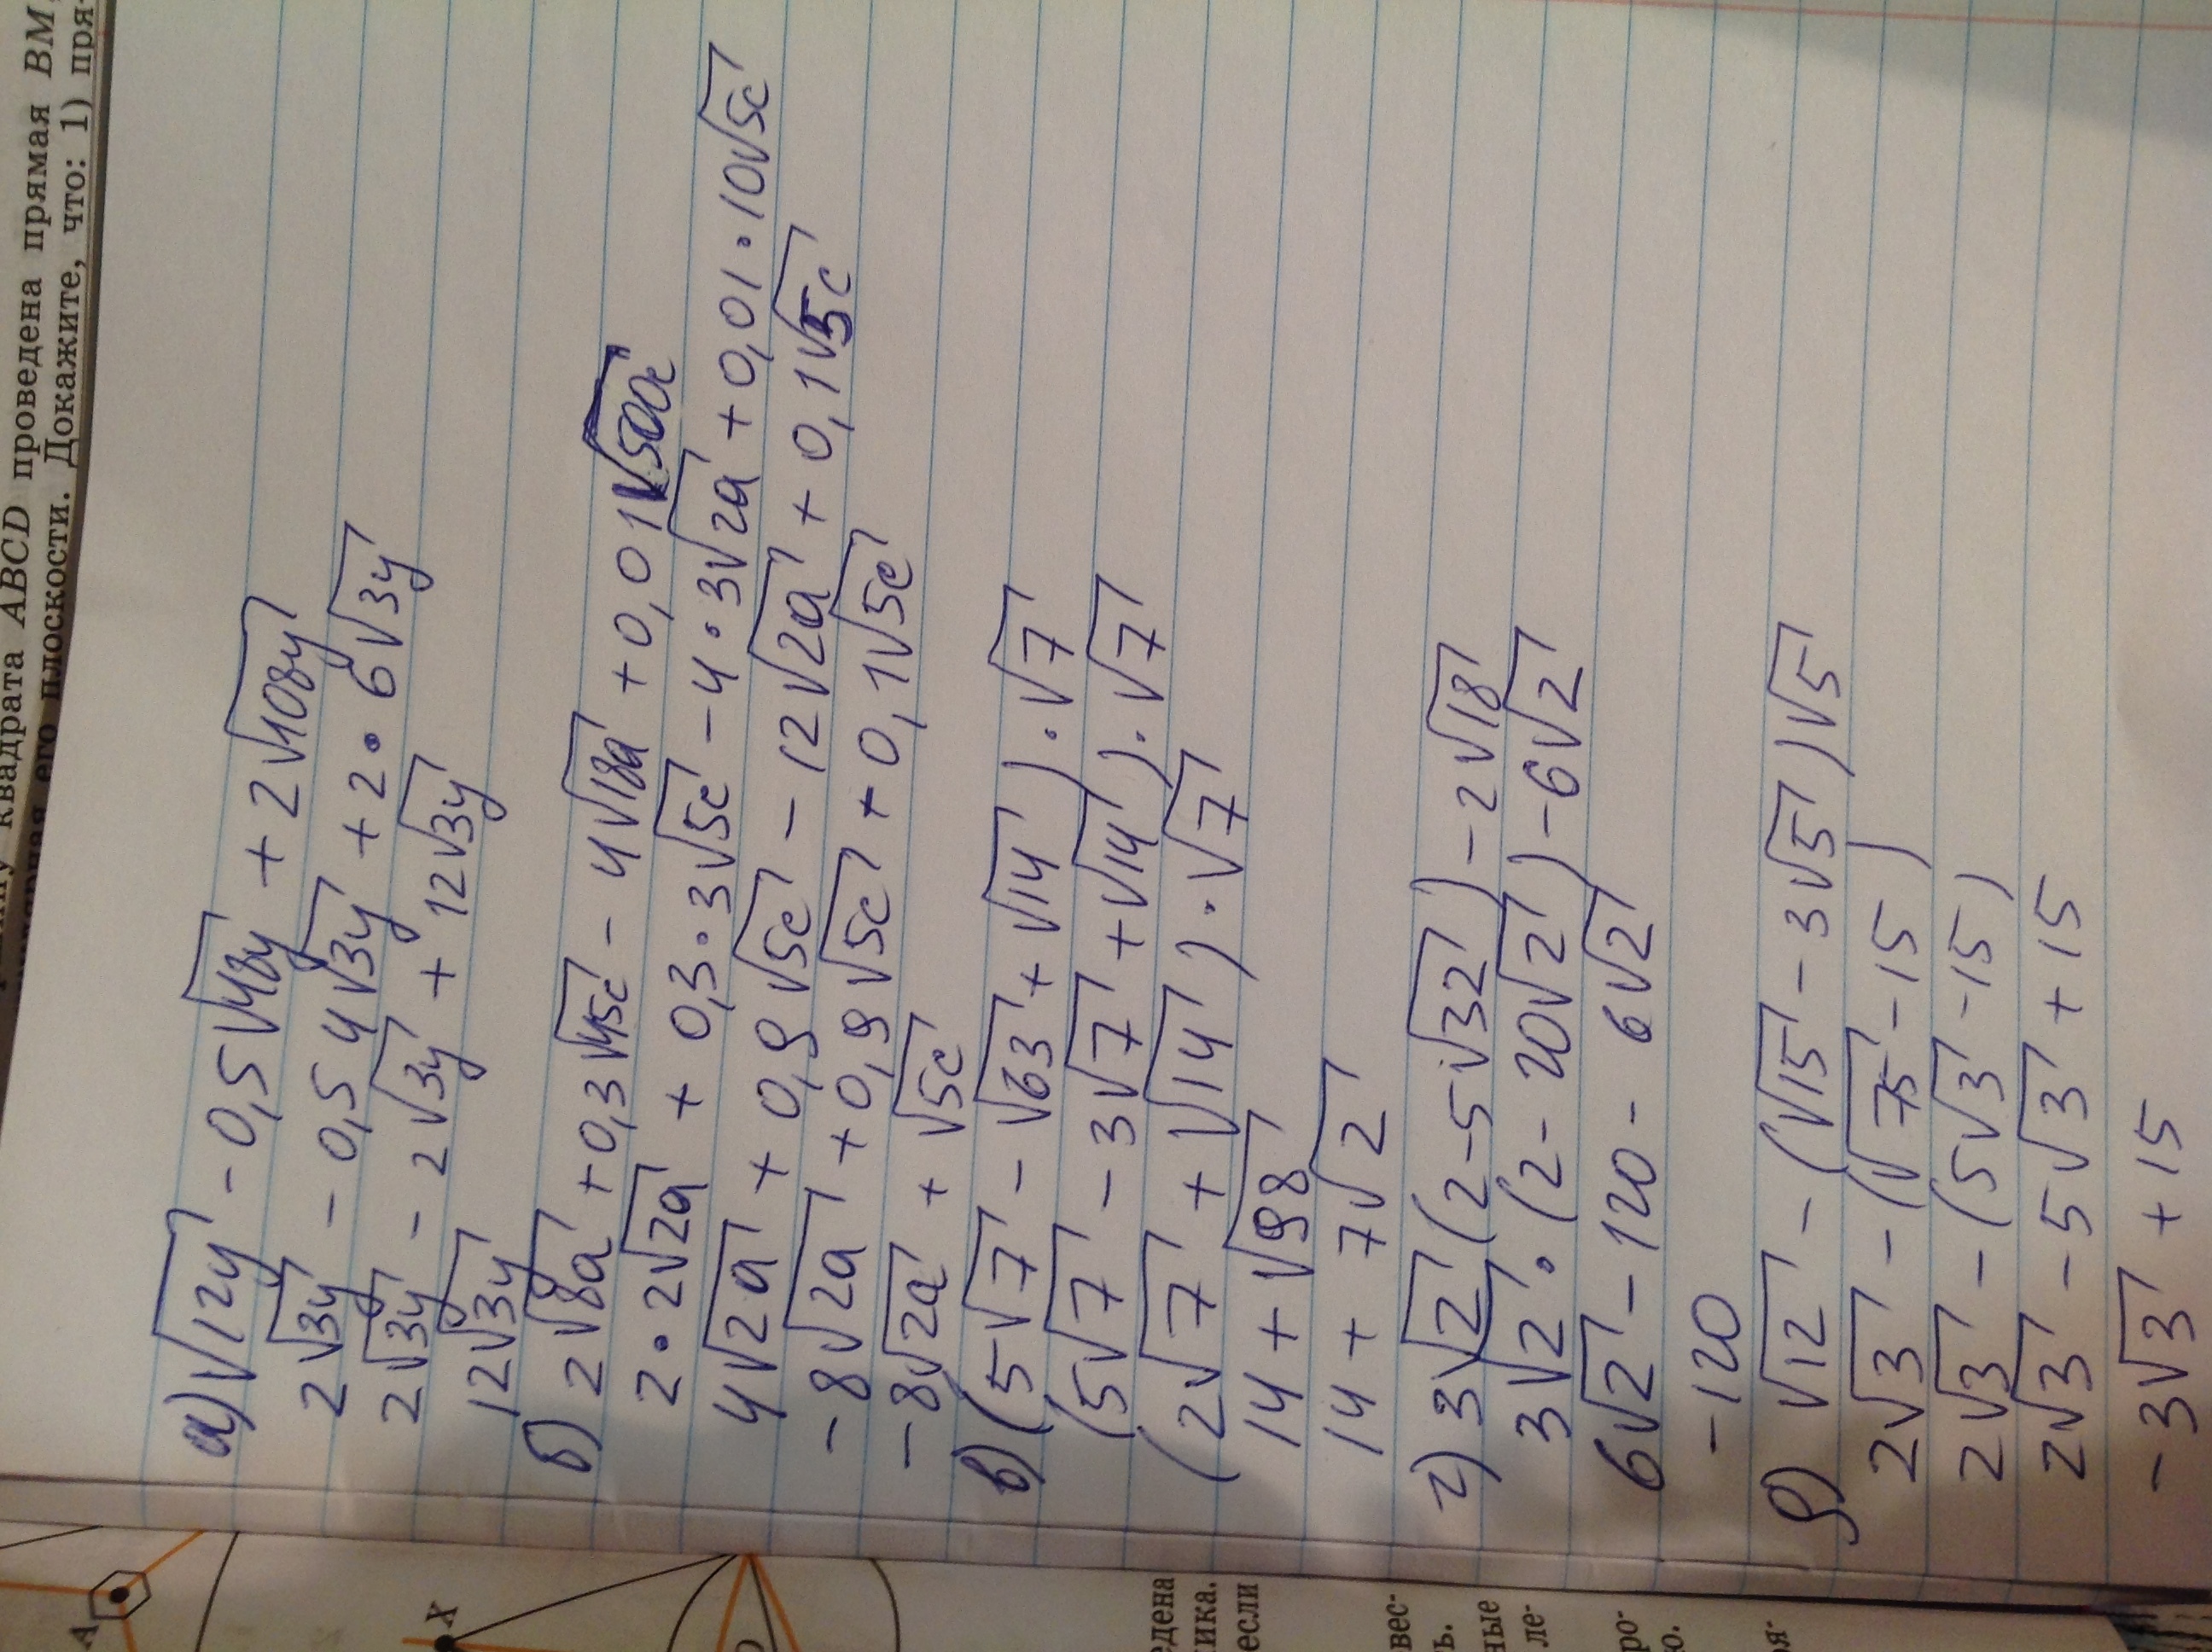 квадрата ABCD проведена прямая BM,
его плоскости. Докажите, что: 1) пря-
а) √12y - 0,5√48y + 2√108y
2√3y - 0,5 4√3y + 2·6√3y
2√3y - 2√3y + 12√3y
12√3y
б) 2√8a + 0,3√45c - 4√18a + 0,01√500c
2·2√2a + 0,3·3√5c - 4·3√2a + 0,01·10√5c
4√2a + 0,9√5c - 12√2a + 0,1√5c
-8√2a + 0,9√5c + 0,1√5c
-8√2a + √5c
в) (5√7 - √63 + √14)·√7
(5√7 - 3√7 + √14)·√7
(2√7 + √14)·√7
14 + √98
14 + 7√2
г) 3√2(2-5√32) - 2√18
3√2·(2-20√2) - 6√2
6√2 - 120 - 6√2
-120
д) √12 - (√15 - 3√5)√5
2√3 - (√75 - 15)
2√3 - (5√3 - 15)
2√3 - 5√3 + 15
-3√3 + 15
A
X
едена
ика.
если
вес-
ь.
ные
ле-
ро-
о.
я-